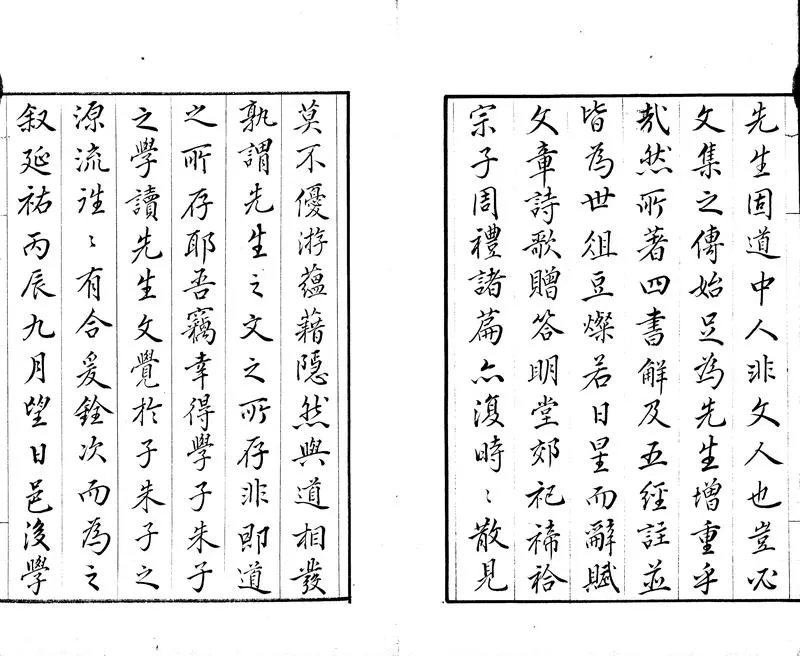 先生固道中人非文人也豈必
文集之傳始足為先生增重乎
哉然所著四書解及五經註並
皆為世俎豆燦若日星而辭賦
文章詩歌贈答明堂郊祀禘祫
宗子周禮諸篇亦復時〻散見
莫不優游蘊藉隱然與道相發
孰謂先生之文之所存非即道
之所存耶吾竊幸得學子朱子
之學讀先生文覺於子朱子之
源流往〻有合爰銓次而為之
叙延祐丙辰九月望日邑後學